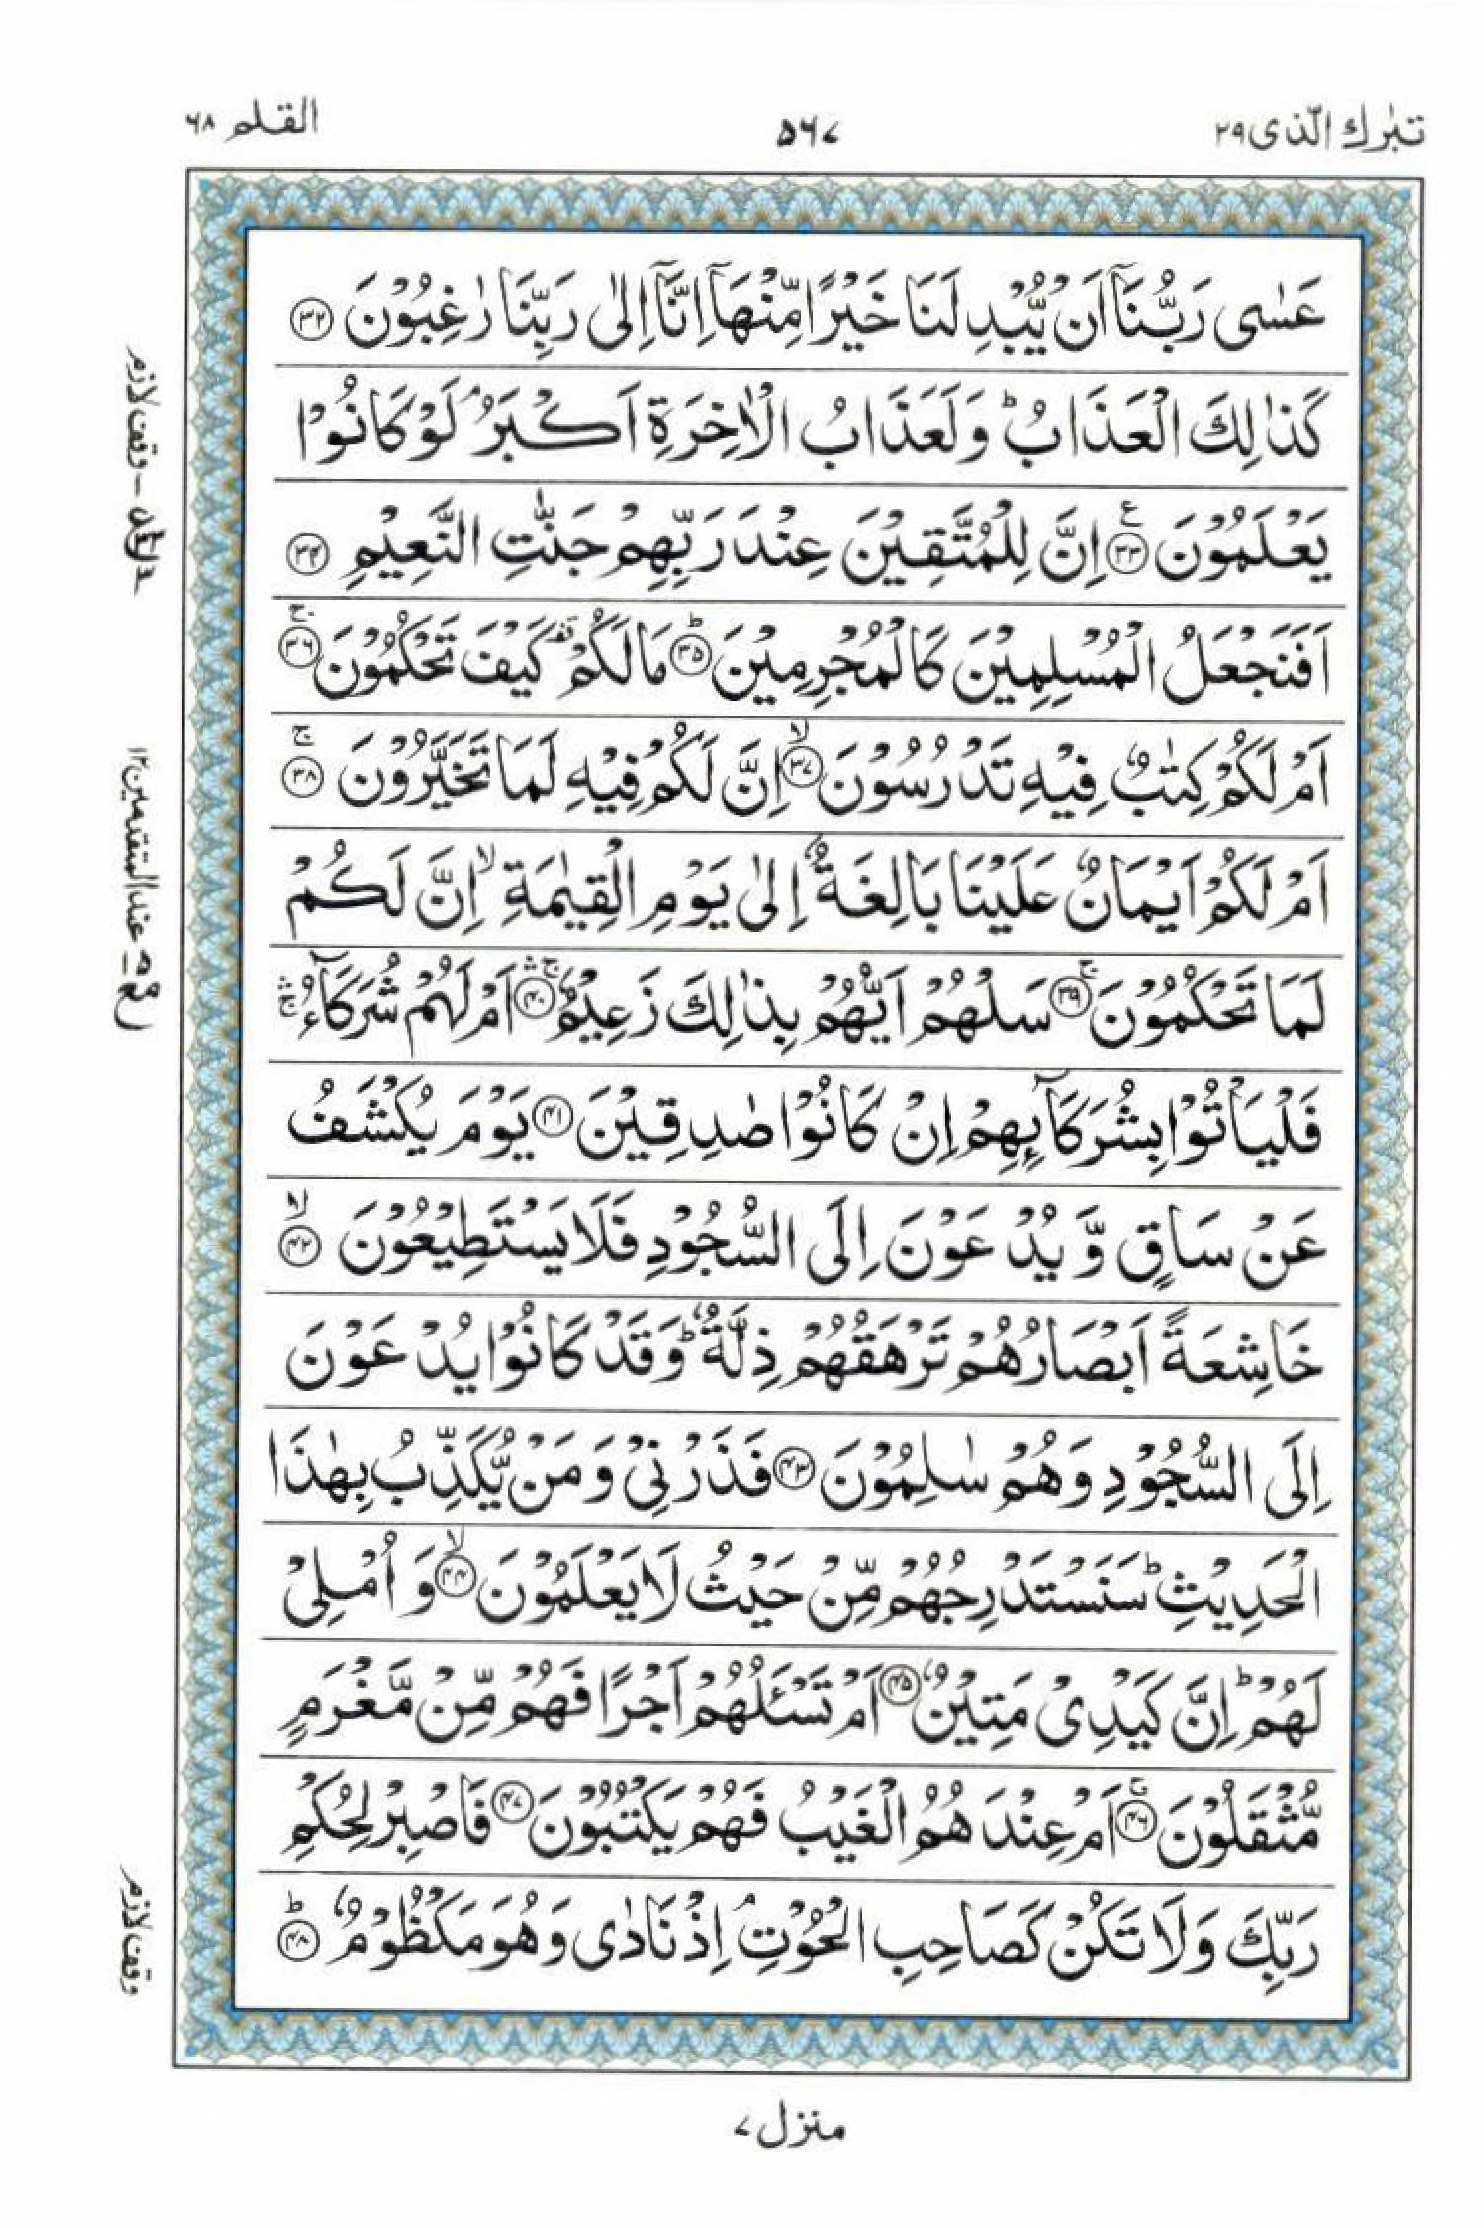 تبٰرك الّذی ۲۹
۵۶۷
القلم ۶۸
عَسٰى رَبُّنَاۤ اَنْ يُّبْدِلَنَا خَيْرًا مِّنْهَاۤ اِنَّاۤ اِلٰى رَبِّنَا رٰغِبُوْنَ ﴿۳۲﴾
كَذٰلِكَ الْعَذَابُ ؕ وَلَعَذَابُ الْاٰخِرَةِ اَكْبَرُ ۘ لَوْ كَانُوْا
يَعْلَمُوْنَ ﴿۳۳﴾ ع اِنَّ لِلْمُتَّقِيْنَ عِنْدَ رَبِّهِمْ جَنّٰتِ النَّعِيْمِ ﴿۳۴﴾
اَفَنَجْعَلُ الْمُسْلِمِيْنَ كَالْمُجْرِمِيْنَ ؕ﴿۳۵﴾ مَا لَكُمْ ۥ كَيْفَ تَحْكُمُوْنَ ۚ﴿۳۶﴾
اَمْ لَكُمْ كِتٰبٌ فِيْهِ تَدْرُسُوْنَ ۙ﴿۳۷﴾ اِنَّ لَكُمْ فِيْهِ لَمَا تَخَيَّرُوْنَ ۚ﴿۳۸﴾
اَمْ لَكُمْ اَيْمَانٌ عَلَيْنَا بَالِغَةٌ اِلٰى يَوْمِ الْقِيٰمَةِ ۙ اِنَّ لَكُمْ
لَمَا تَحْكُمُوْنَ ۚ﴿۳۹﴾ سَلْهُمْ اَيُّهُمْ بِذٰلِكَ زَعِيْمٌ ۚۛ﴿۴۰﴾ اَمْ لَهُمْ شُرَكَآءُ ۚۛ
فَلْيَاْتُوْا بِشُرَكَآئِهِمْ اِنْ كَانُوْا صٰدِقِيْنَ ﴿۴۱﴾ يَوْمَ يُكْشَفُ
عَنْ سَاقٍ وَّيُدْعَوْنَ اِلَى السُّجُوْدِ فَلَا يَسْتَطِيْعُوْنَ ۙ﴿۴۲﴾
خَاشِعَةً اَبْصَارُهُمْ تَرْهَقُهُمْ ذِلَّةٌ ؕ وَقَدْ كَانُوْا يُدْعَوْنَ
اِلَى السُّجُوْدِ وَهُمْ سٰلِمُوْنَ ﴿۴۳﴾ فَذَرْنِيْ وَمَنْ يُّكَذِّبُ بِهٰذَا
الْحَدِيْثِ ؕ سَنَسْتَدْرِجُهُمْ مِّنْ حَيْثُ لَا يَعْلَمُوْنَ ۙ﴿۴۴﴾ وَاُمْلِيْ
لَهُمْ ؕ اِنَّ كَيْدِيْ مَتِيْنٌ ﴿۴۵﴾ اَمْ تَسْئَلُهُمْ اَجْرًا فَهُمْ مِّنْ مَّغْرَمٍ
مُّثْقَلُوْنَ ۚ﴿۴۶﴾ اَمْ عِنْدَهُمُ الْغَيْبُ فَهُمْ يَكْتُبُوْنَ ﴿۴۷﴾ فَاصْبِرْ لِحُكْمِ
رَبِّكَ وَلَا تَكُنْ كَصَاحِبِ الْحُوْتِ ۘ اِذْ نَادٰى وَهُوَ مَكْظُوْمٌ ؕ﴿۴۸﴾
وقف لازم
عند المتقدمين ۱۲
وقف لازم
منزل ۷